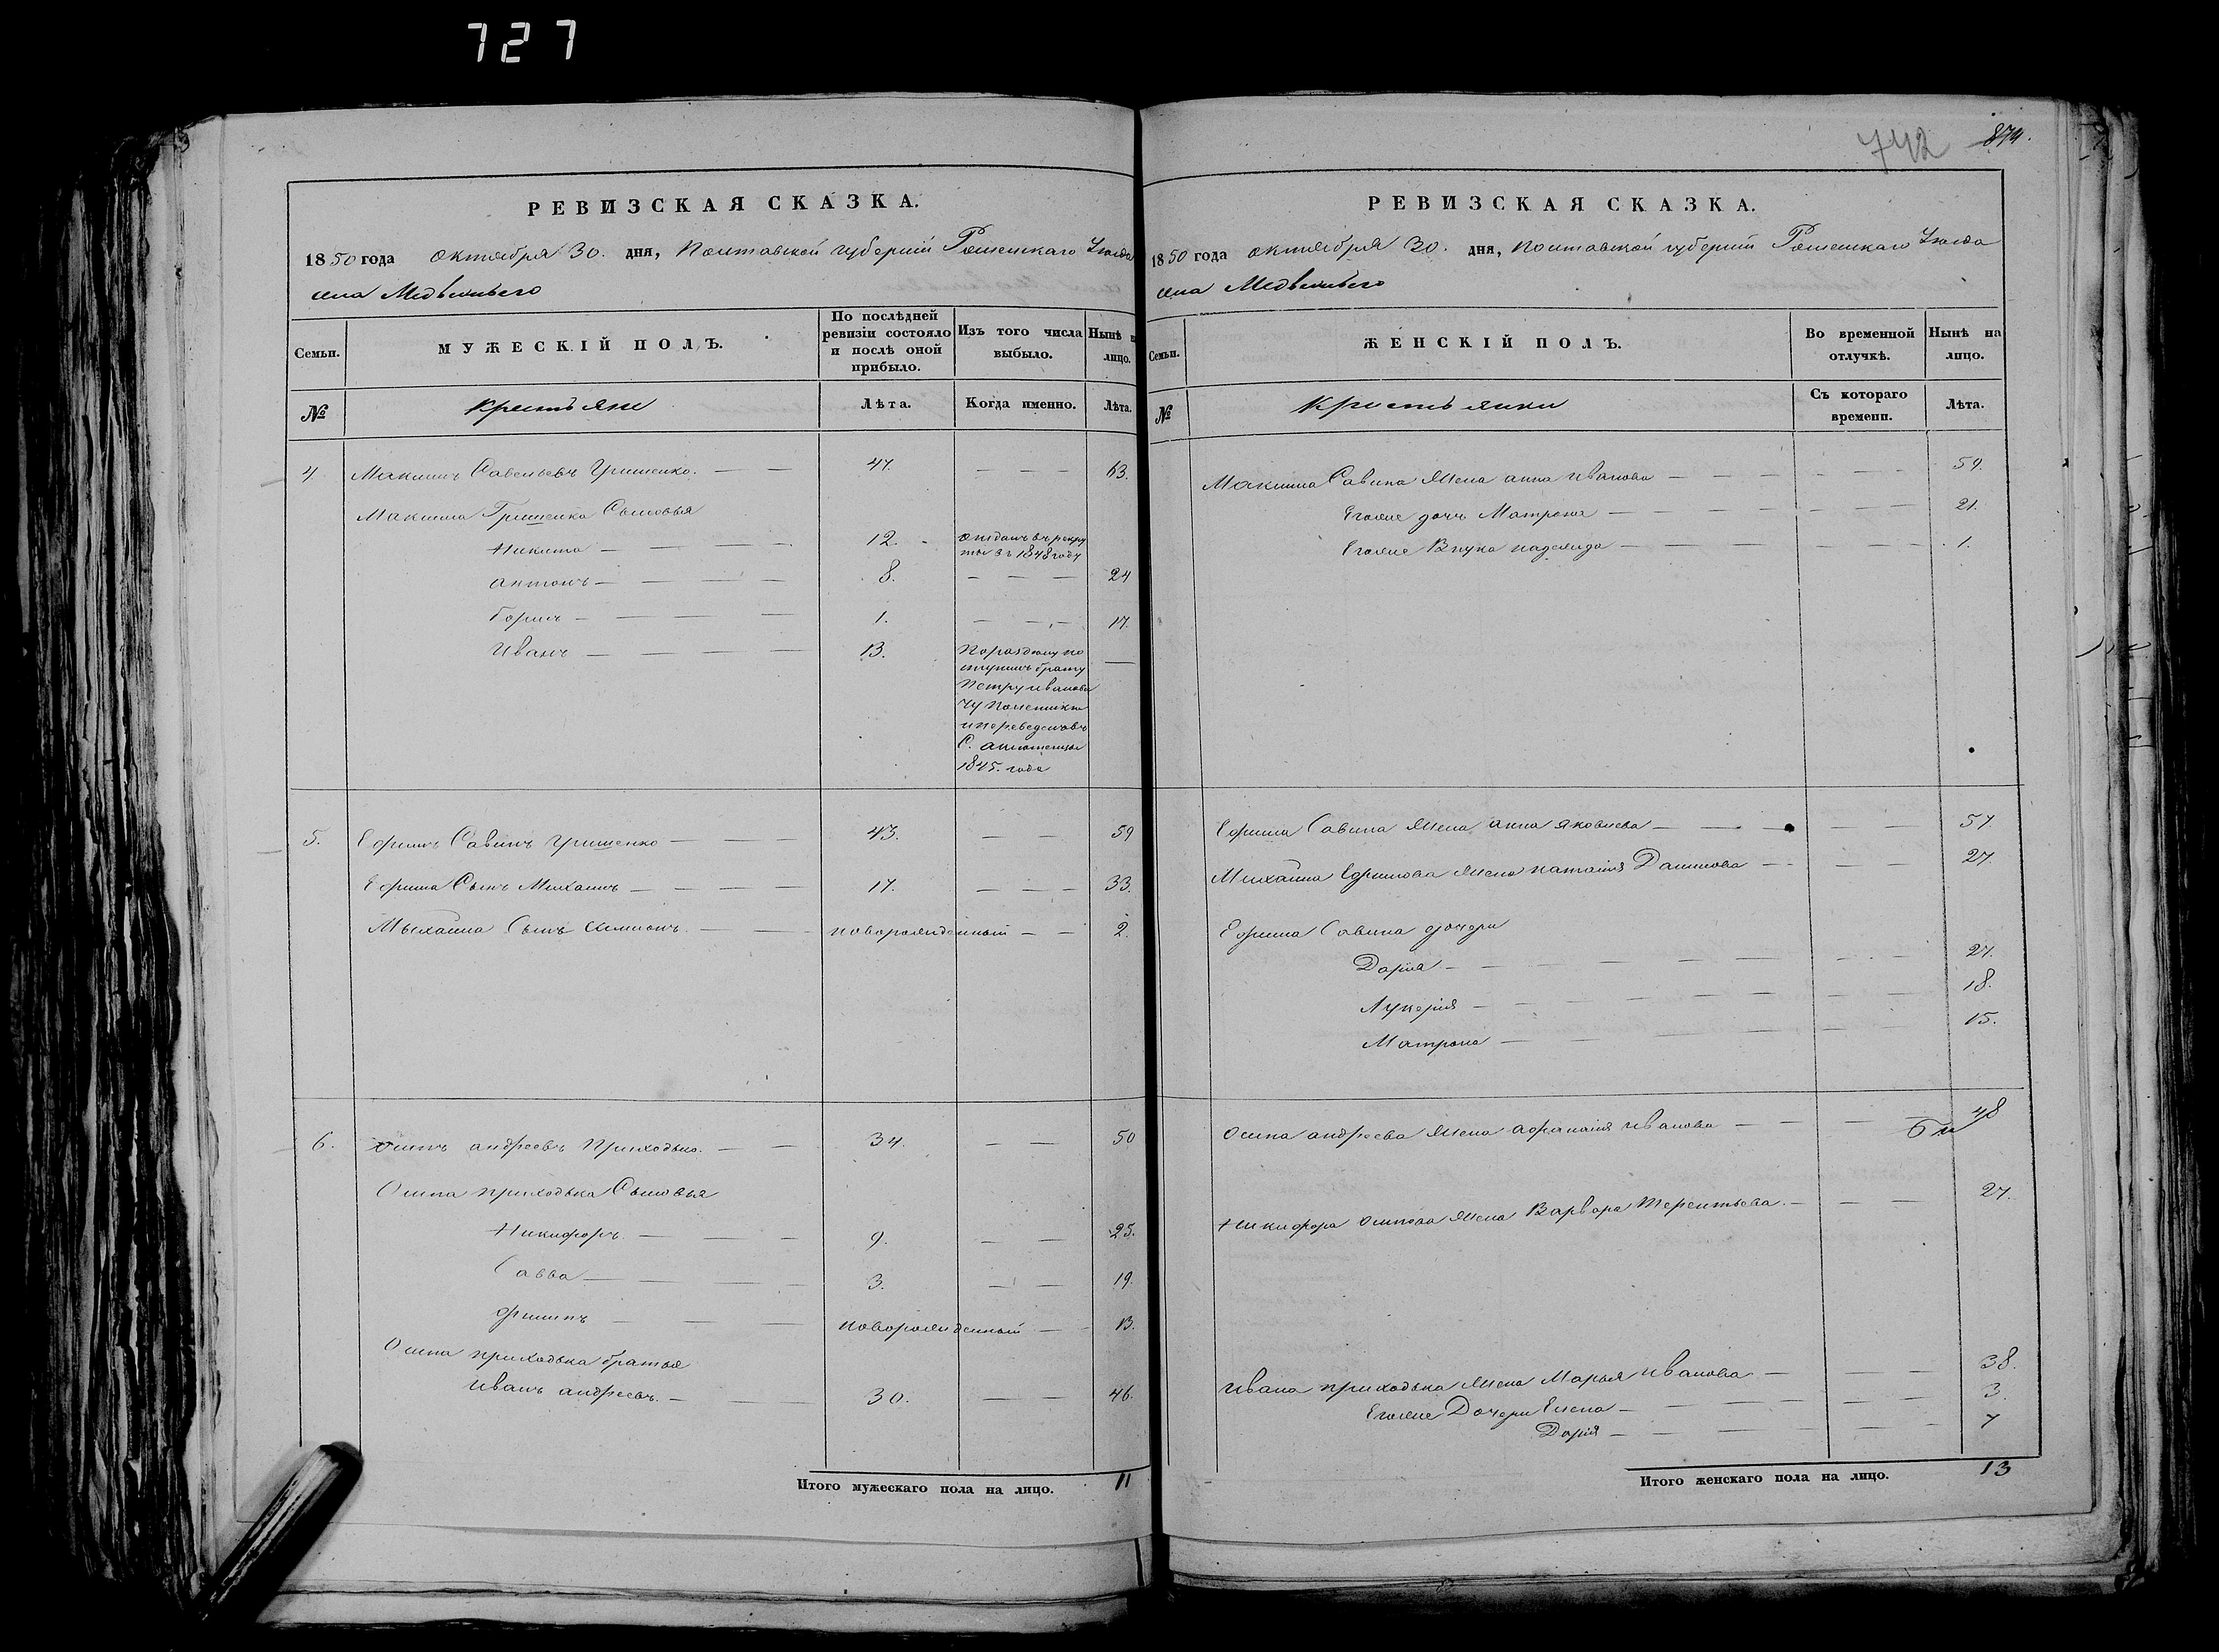 727
742 874.
РЕВИЗСКАЯ СКАЗКА.
1850 года октября 30. дня, Полтавской губернии Роменскаго Уезда
села Медвежьего
Семьи.
МУЖЕСКІЙ ПОЛЪ.
По послѣдней ревизіи состояло и послѣ оной прибыло.
Изъ того числа выбыло.
Нынѣ на лицо.
№
Крестьяне
Лѣта.
Когда именно.
Лѣта.
4 Максимъ Савельевъ Гришенко. — — 47. — — — 63.
Максима Гришенка Сыновья
Никита — — — 12. отданъ въ рекру
ты въ 1848 году
Антонъ — — — 8. — — — 24
Борисъ — — — 1. — — — 17.
Иванъ — — — 13. По разделу по —
ступилъ брату
Петру Иванови
чу Полетики
и переведенъ въ
С.
1845. года
5. Ефимъ Савинъ Гришенко — — — 43. — — 59
Ефима Сынъ Михаилъ — — — 17. — — — 33.
Михаила Сынъ Симионъ. — — новорожденный — — 2.
6. Осипъ андреевъ Приходько. — — 34. — — 50
Осипа приходька Сыновья
Никифоръ — — — 9. — — 25.
Савва — — — 3. — — 19.
филипъ — — — новорожденный — — 13.
Осипа приходька братья
Иванъ андреевъ. — — 30. — — 46.
Итого мужескаго пола на лицо. 11
РЕВИЗСКАЯ СКАЗКА.
1850 года октября 30. дня, Полтавской губернии Роменскаго Уезда
села Медвежьего
Семьи.
ЖЕНСКІЙ ПОЛЪ.
Во временной отлучкѣ.
Нынѣ на лицо.
№
Крестьянки
Съ котораго времени.
Лѣта.
Максима Савина Жена анна Иванова — — — 59.
Егоже дочь Матрона — — — 21.
Егоже Внука надежда — — — 1.
Ефима Савина Жена анна Яковлева — — — 57.
Михаила Ефимова Жена наталия Данилова — — — 27.
Ефима Савина дочери
Дария — — — 27.
Лукерия — — — 18.
Матрона — — — 15.
Осипа андреева Жена афанасия Иванова — — — 48
Никифора Осипова Жена Варвара Терентьева. — — — 27.
Ивана приходька Жена Марья Иванова — — — 38.
Егоже Дочери Елена — — — 3.
Дария — — — 7
Итого женскаго пола на лицо. 13